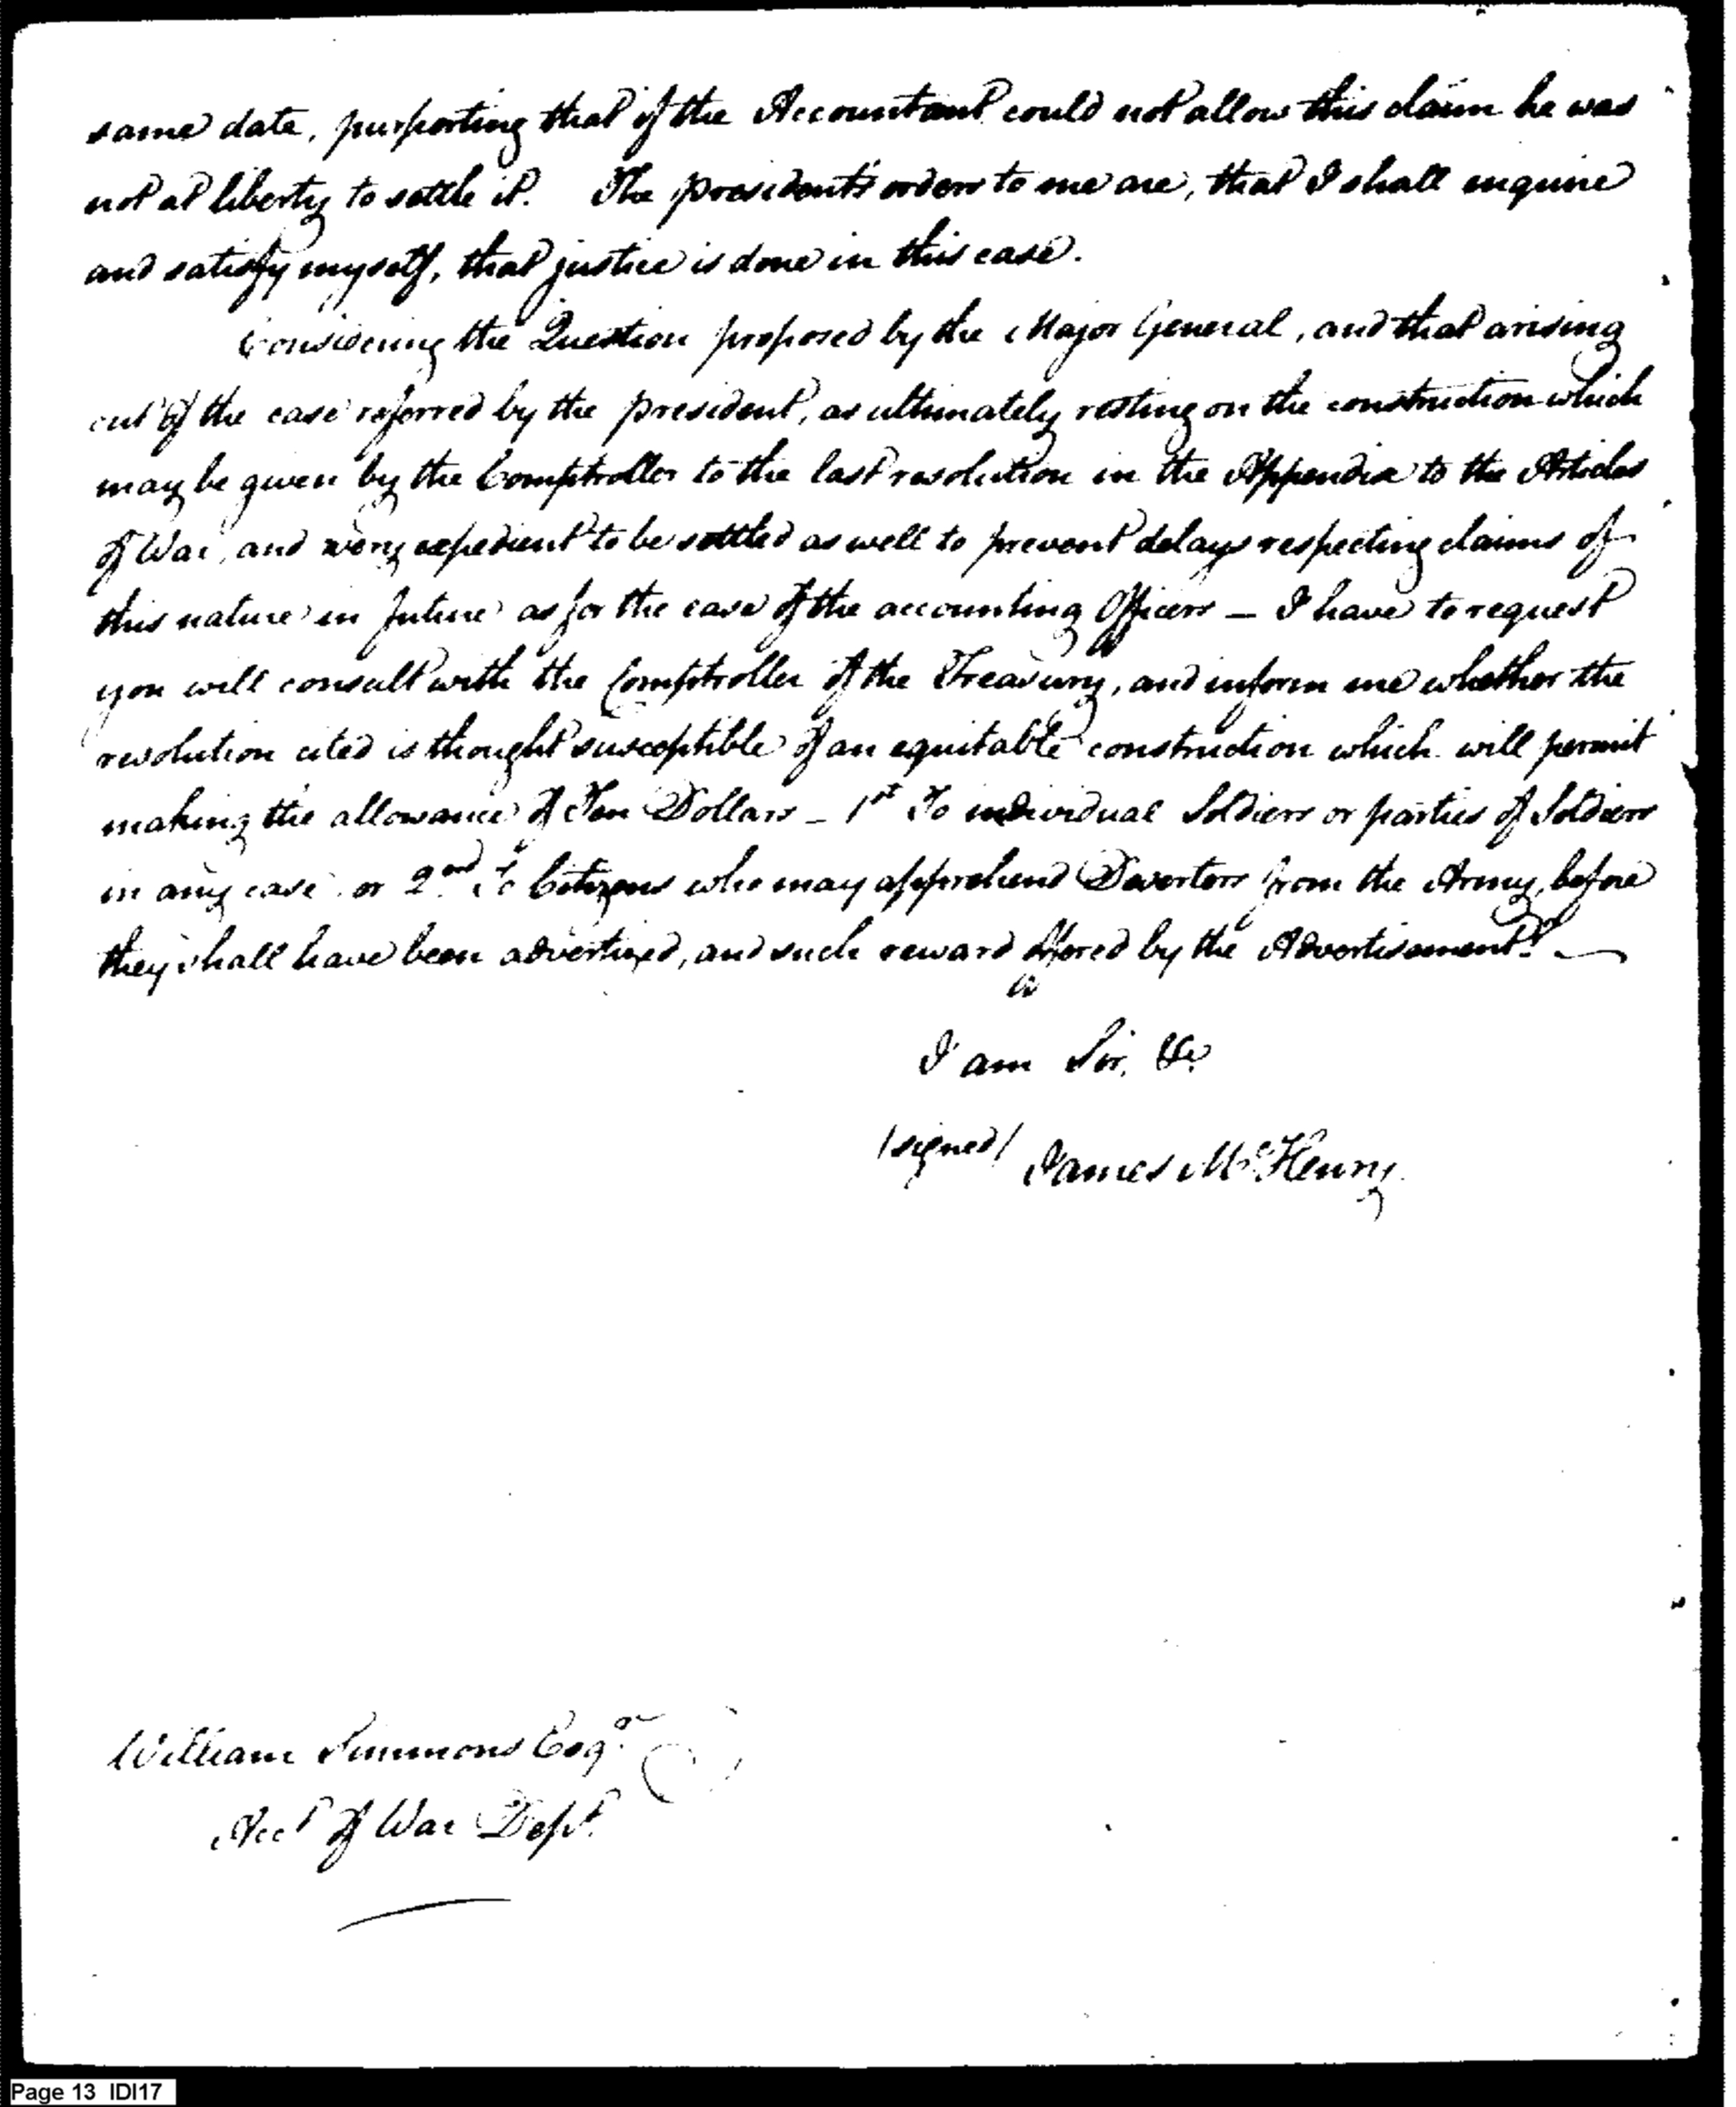 same date, purporting that if the Accountant could not allow this claim he was
not at liberty to settle it. The president's orders to me are, that I shall enquire
and satisfy myself, that justice is done in this case.
Considering the Question proposed by the Major General, and that arising
out of the case referred by the president, as ultimately resting on the construction which
may be given by the Comptroller to the last resolution in the Appendix to the Articles
of War, and very expedient to be settled as well to prevent delays respecting claims of
this nature in future as for the ease of the accounting Officers — I have to request
you will consult with the Comptroller of the Treasury, and inform me whether the
resolution cited is thought susceptible of an equitable construction which will permit
making the allowance of Ten Dollars — 1st To individual Soldiers or parties of Soldiers
in any case or 2nd To Citizens who may apprehend Deserters from the Army, before
they shall have been advertized, and such reward offered by the Advertisement? —
I am Sir, &c.
/signed/ James McHenry
William Simmons Esqr
Acct of War Dept.
Page 13 IDI17